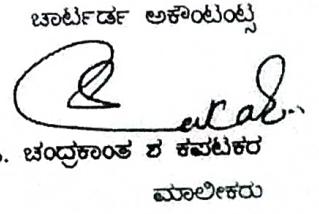 ಚಾರ್ಟರ್ಡ ಅಕೌಂಟಂಟ್ಸ
. ಚಂದ್ರಕಾಂತ ಶ ಕಪಟಕರ
ಮಾಲೀಕರು